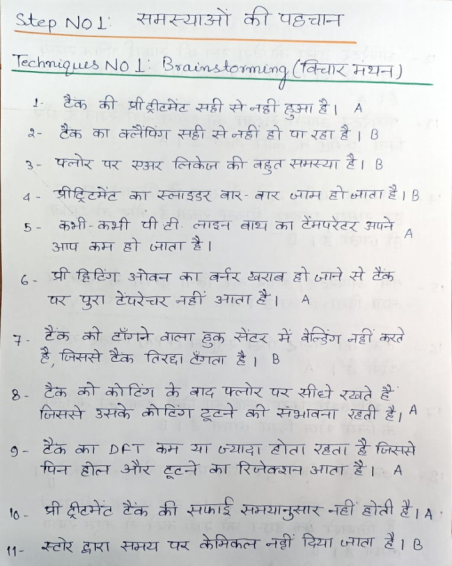 Step NO 1: समस्याओं की पहचान
Techniques NO 1: Brainstorming (विचार मंथन)
1- टैंक की प्री ट्रीटमेंट सही से नहीं हुआ है। A
2- टैंक का क्लैपिंग सही से नहीं हो पा रहा है। B
3- फ्लोर पर एअर लिकेज की बहुत समस्या है। B
4- प्रीट्रिटमेंट का स्लाइडर बार-बार जाम हो जाता है। B
5- कभी-कभी पी टी लाइन बाथ का टेंमपरेटर अपने A
आप कम हो जाता है।
6- प्री हिटिंग ओवन का बर्नर खराब हो जाने से टैंक
पर पुरा टेपरेच्र नहीं आता है। A
7- टैंक को टाँगने वाला हुक सेंटर में वेल्डिंग नहीं करते
है, जिससे टैंक तिरछा टँगता है। B
8- टैंक को कोटिंग के बाद फ्लोर पर सीधे रखते है
जिससे उसके कोटिंग टूटने की संभावना रहती है। A
9- टैंक का DFT कम या ज्यादा होता रहता है जिससे
पिन होल और टूटने का रिजेक्शन आता है। A
10- प्री ट्रीटमेंट टैंक की सफाई समयानुसार नहीं होती है। A
11- स्टोर द्वारा समय पर केमिकल नहीं दिया जाता है। B